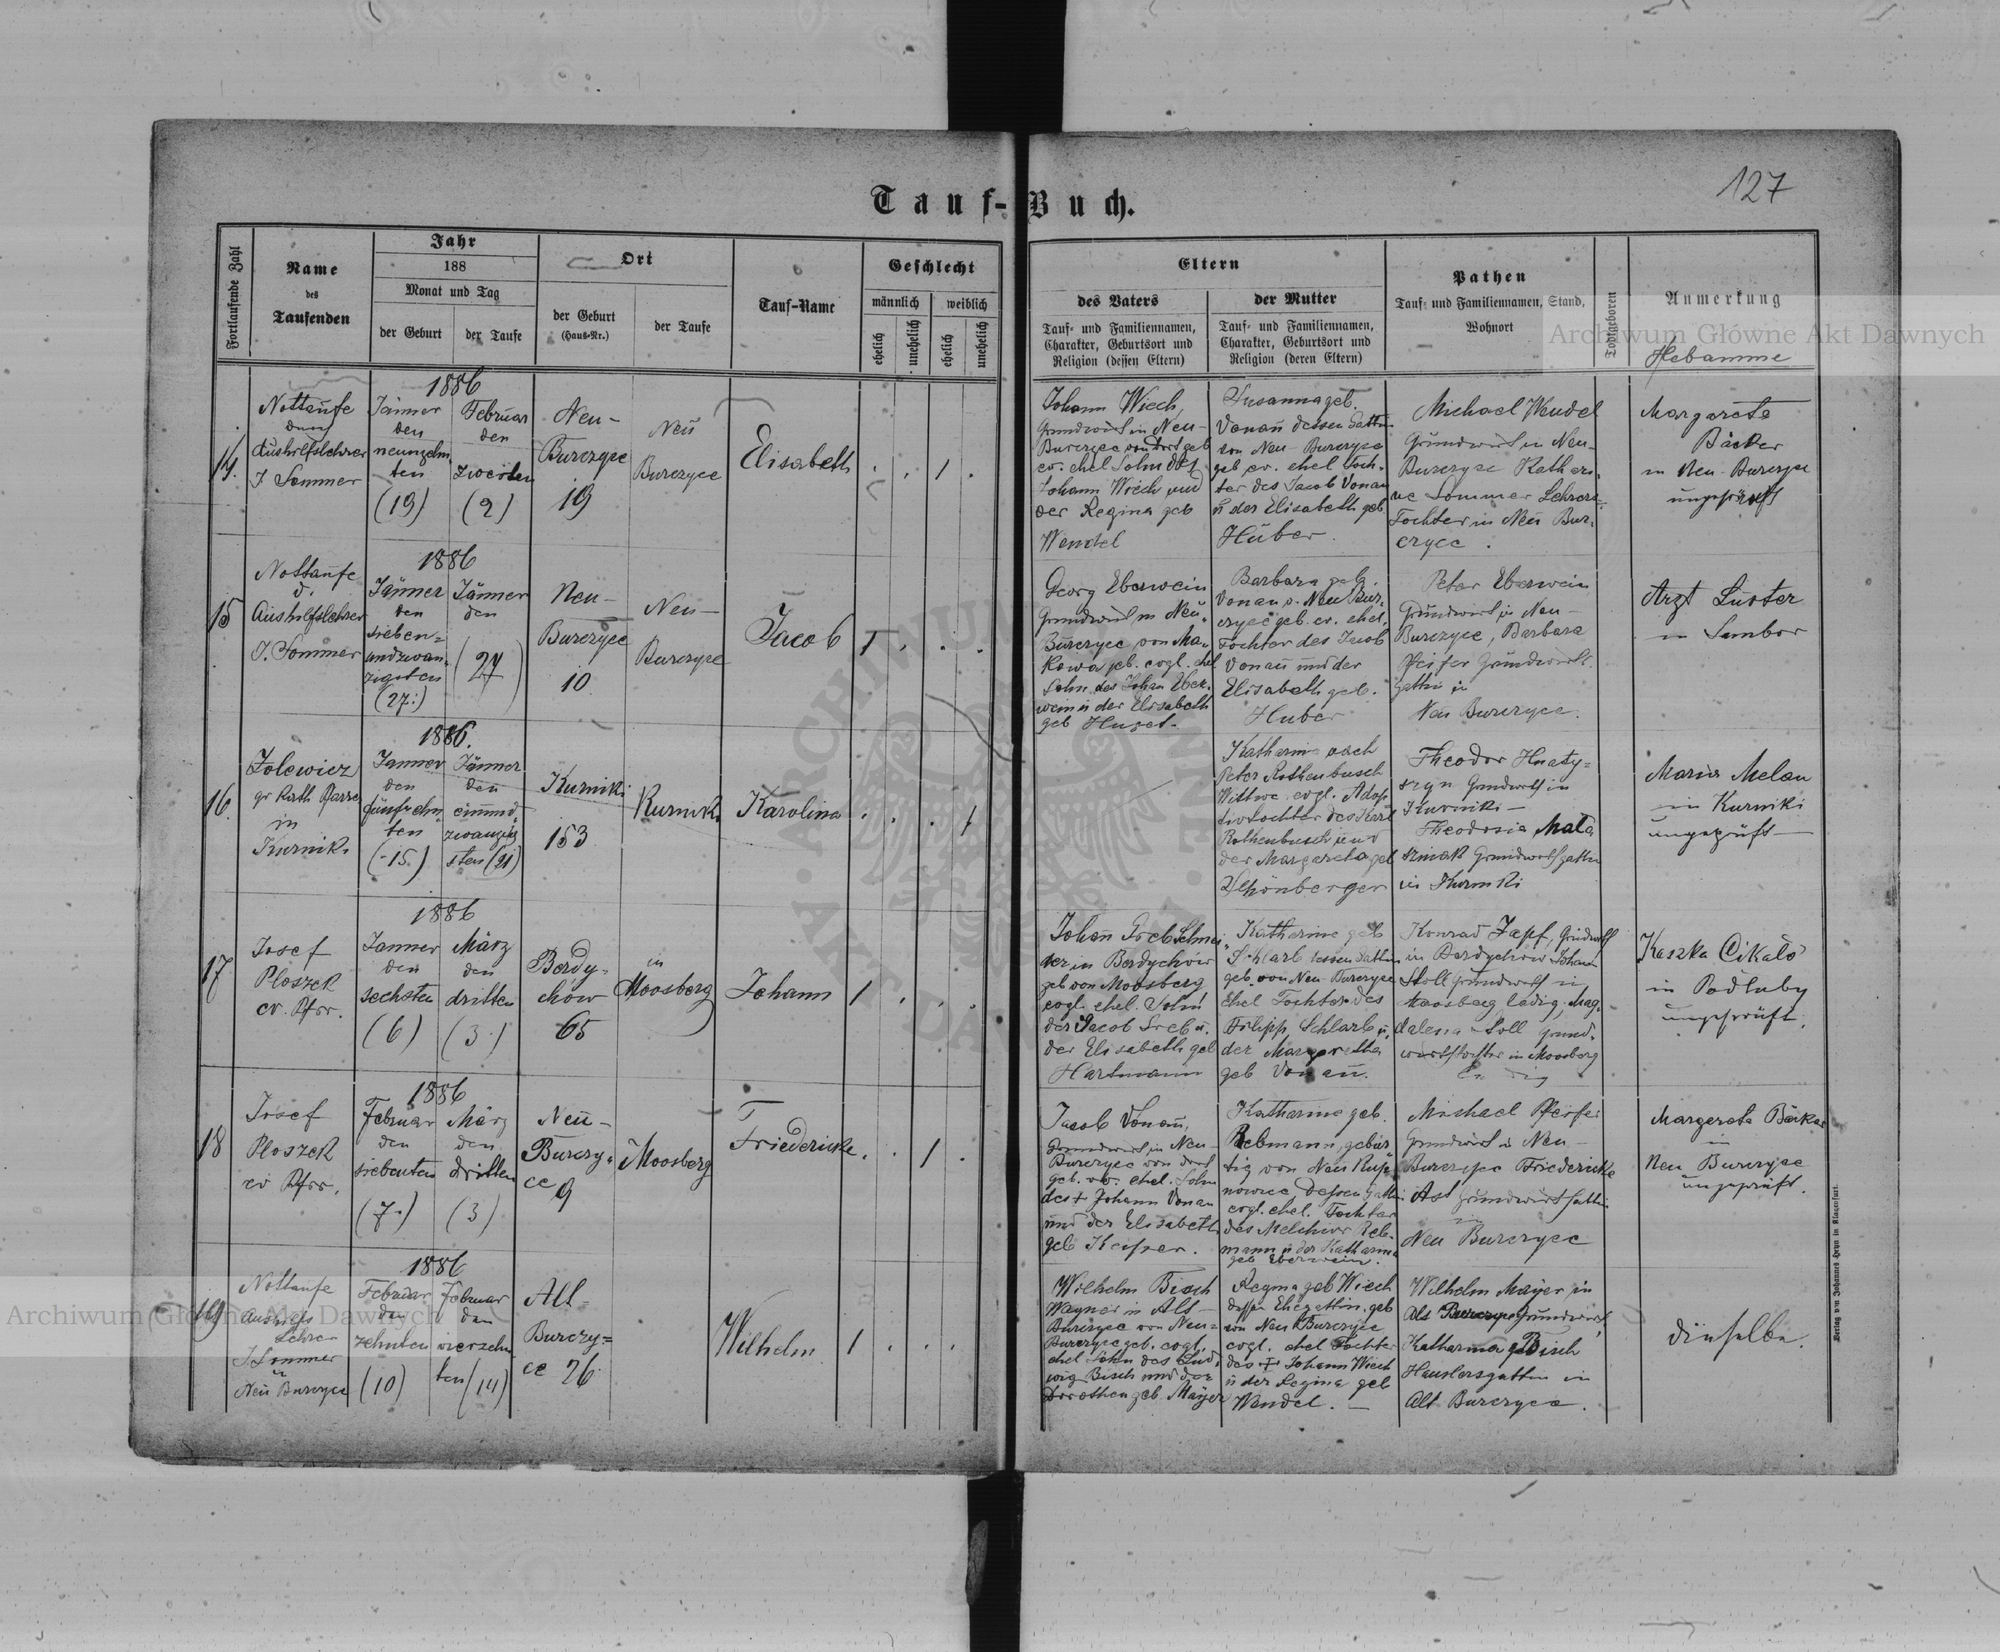 127
Tauf-Buch.
Fortlaufende Zahl
Name
des
Taufenden
Jahr
188
Monat und Tag
der Geburt
der Taufe
Ort
der Geburt
(Haus-Nr.)
der Taufe
Tauf-Name
Geschlecht
männlich
weiblich
ehelich
unehelich
ehelich
unehelich
Eltern
des Vaters
Tauf- und Familiennamen,
Charakter, Geburtsort und
Religion (dessen Eltern)
der Mutter
Tauf- und Familiennamen,
Charakter, Geburtsort und
Religion (deren Eltern)
Pathen
Tauf- und Familiennamen, Stand,
Wohnort
Todtgeboren
Anmerkung
Hebamme
14.
Nottaufe
Aushilfslehrer
J Sommer
1886
Jänner
den
neunzehn
ten
(19)
Februar
den
zweiten
(2)
Neu-
Burczyce
19
Neu
Burczyce
Elisabeth
. . 1 .
Johann Wiech,
Grundwirt in Neu-
Burczyce von dort geb
ev. ehel Sohn des
Johann Wiech und
der Regina geb
Wendel
Susanna geb.
Vonau dessen Gattin
von Neu-Burczyce
geb ev. ehel Toch-
ter des Jacob Vonau
u der Elisabeth geb
Huber.
Michael Wendel
Grundwirt in Neu-
Burczyce Kathari-
ne Sommer Lehrers-
Tochter in Neu Bur-
czyce.
Margareta
Bäcker
in Neu-Burczyce
ungeprüft
15
Nottaufe
d.
Aushilfslehrer
J. Sommer
1886
Jänner
den
sieben-
undzwan-
zigsten
(27.)
Jänner
den
(27)
Neu-
Burczyce
10
Neu-
Burczyce
Jacob
1 . . .
Georg Eberwein
Grundwirt in Neu-
Burczyce von Ma-
kowa geb. evgl. ehel
Sohn des Johan Eber-
wein u der Elisabeth
geb
Barbara geb.
Vonau v. Neu Bur-
czyce geb. ev. ehel.
Tochter des Jacob
Vonau und der
Elisabeth geb.
Huber
Peter Eberwein
Grundwirt in Neu-
Burczyce, Barbara
Pfeifer Grundwirts
Gattin in
Neu Burczyce.
Arzt Luster
in Sambor
16.
gr Kath Pfarrer
in
Kurniki
1886.
Jänner
den
fünfzehn-
ten
(15)
Jänner
den
einund-
zwanzig
sten (21)
Kurniki
153
Kurniki
Karolina
. . . 1
Katharine nach
Peter Rothenbusch
Wittwe evgl. Adop-
tivtochter des Karl
Rothenbusch und
der Margareta geb
Schönberger
Theodor Hnaty-
szyn Grundwirt in
Kurniki-
Theodosia Mata
Grundwirtsgattin
in Kurniki
Maria Melan
in Kurniki
ungeprüft
17
Josef
Ploszek
ev. Pfrr.
1886
Jänner
den
sechsten
(6)
März
den
dritten
(3.)
Bordy-
chow
65
in
Moosberg
Johann
1 . . .
geb von Moosberg
evgl. ehel. Sohn
der Elisabeth geb
Hartmann
Katharine geb
Schlarb dessen Gattin
geb. von Neu-Burczyce
Ehel Tochter des
Filipp Schlarb u.
der Margaretha
geb Vonau.
Konrad Zapf, Grundwirt
in Bordychow Johann
Stoll Grundwirt in
Moosberg ledig, Mag-
dalena Soll Grund-
wirtstochter in Moosberg
Kaszka Cikalo
in Podluby
ungeprüft.
18
Josef
Ploszek
ev Pfrr.
1886
Februar
den
siebenten
(7.)
März
den
dritten
(3)
Neu-
Burczy-
ce 9
Moosberg
Friedericke
. . 1 .
Jacob Vonau,
Grundwirt in Neu-
Burczyce von dort
geb. ev. ehel. Sohn
des + Johann Vonau
und der Elisabeth
geb Keiper.
Katharine geb.
Rebmann, gebür-
tig von Neu Kup-
nowice dessen Gattin
evgl. ehel. Tochter
des Melchior Reb-
mann u der Katharina
geb Eberwein.
Michael Pfeifer
Grundwirt in Neu-
Burczyce Friedericke
Ast Grundwirts Gattin
in
Neu Burczyce
Margareta Bäcker
in
Neu Burczyce
ungeprüft.
19
Nottaufe
Aushilfs
Lehrer
J Sommer
Neu Burczyce
1886
Februar
den
zehnten
(10)
Februar
den
vierzehn
ten (14)
Alt-
Burczy-
ce 26
Wilhelm
1 . . .
Wilhelm Bisch
Wagner in Alt-
Burczyce von Neu-
Burczyce geb. evgl.
ehel Sohn des Lud-
wig Bisch und der
Dorothea geb Mayer
Regina geb Wiech
dessen Ehegattin geb
von Neu Burczyce
evgl. ehel Tochter
des + Johann Wiech
u der Regina geb
Wendel.
Wilhelm Mayer in
Alt Burczyce Grundwirt,
Katharina geb Bisch
Häuslersgattin in
Alt Burczyce.
dieselbe.
Verlag von Johannes Heyn in Klagenfurt.
Archiwum Główne Akt Dawnych
Archiwum Główne Akt Dawnych